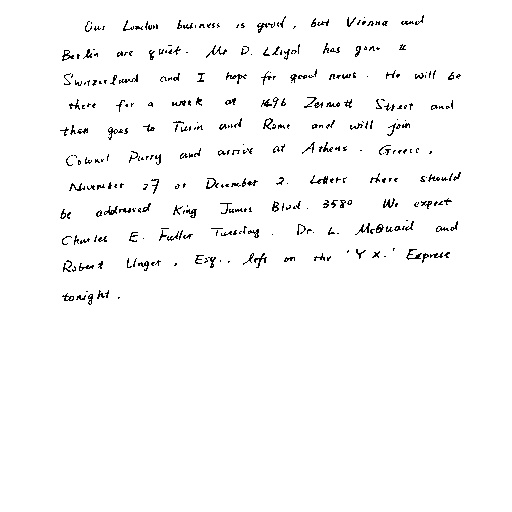 Our London business is good, but Vienna and
Berlin are quiet. Mr D. Lloyd has gone to
Switzerland and I hope for good news. He will be
there for a week at 1496 Zermott Street and
then goes to Turin and Rome and will join
Colonel Parry and arrive at Athens. Greece,
November 27 or December 2. Letters there should
be addressed King James Blvd. 3580 We expect
Charles E. Fuller Tuesday. Dr. L. McQuaid and
Robert Unger, Esq., left on the 'Y X.' Express
tonight.